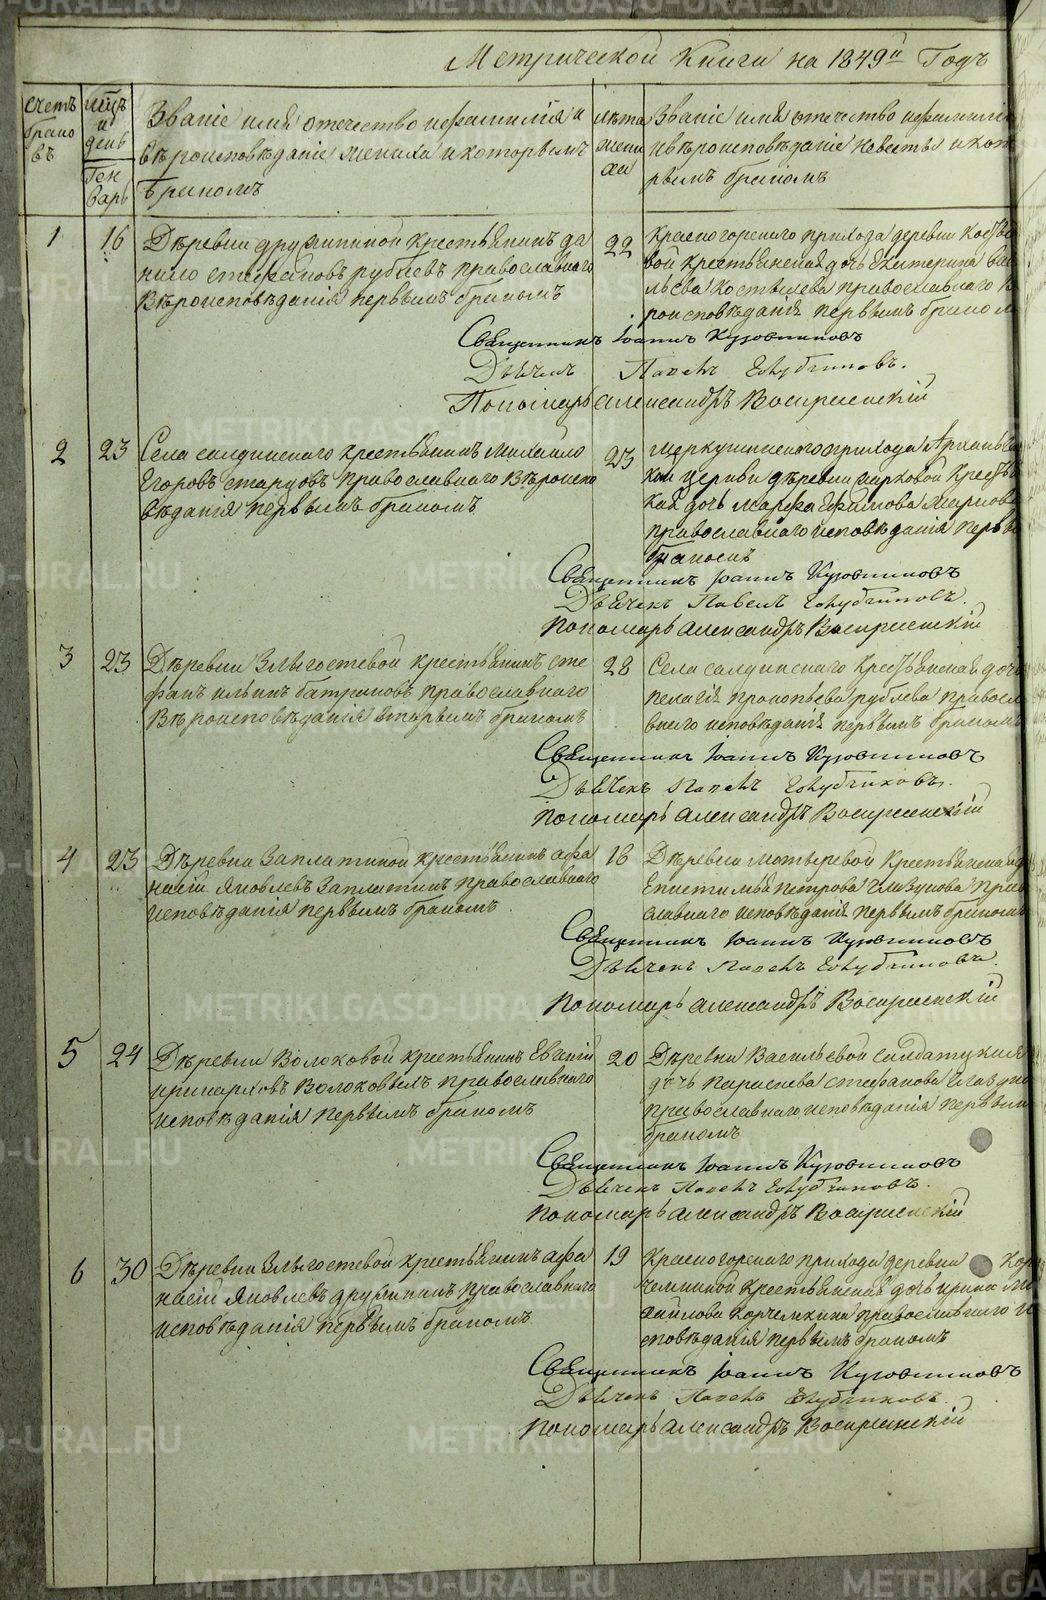 Метрической Книги на 1849й Годъ
Счетъ браковъ
мцъ и день
Генварь
Званіе имя отечество и фамилія и
вѣроисповѣданіе жениха и которымъ
бракомъ
лѣта жениха
Званіе имя отечество и фамилія
и вѣроисповѣданіе невесты и кото
рымъ бракомъ
1
16
Деревни дружининой крестьянинъ да
нило стефановъ рублевъ православнаго
Вѣроисповѣданія первымъ бракомъ
22
красногорскаго прихода деревни
вой крестьянская дочь Екатерина Васи
льева костылева православнаго
роисповѣданія первымъ браком
Священникъ Іоаннъ Кузовниковъ
Дьячекъ Павелъ Голубчиковъ.
Пономарь Александръ Воскресенскій
2
23
Села салдинскаго крестьянинъ Михайло
Егоровъ старцовъ Православнаго Вѣроиспо
вѣданія первымъ бракомъ
23
меркушинскаго прихода Арханге
кой церкви деревни марковой Крестья
кая дочь марфа Ефимова маркова
православнаго исповѣданія перв
бракомъ
Священникъ Іоаннъ Кузовниковъ
Дьячекъ Павелъ Голубчиковъ.
Пономарь Александръ Воскресенскій
3
23
Деревни Злыгостевой крестьянинъ сте
фанъ ильинъ батраковъ православнаго
Вѣроисповѣданія вторымъ бракомъ
28
Села салдинскаго Крестьянская дочь
пелагія прокопьева рублева правосла
внаго исповѣданія первымъ бракомъ
Священникъ Іоаннъ Кузовниковъ
Дьячекъ Павелъ Голубчиковъ.
Пономарь Александръ Воскресенскій
4
23
Деревни Заплатиной крестьянинъ афа
насій Яковлевъ Заплатинъ православнаго
исповѣданія первымъ бракомъ
18
Деревни мотыревой Крестьянская
Епистимія петрова глазунова право
славнаго исповѣданія первымъ бракомъ
Священникъ Іоаннъ Кузовниковъ
Дьячекъ Павелъ Голубчиковъ.
Пономарь Александръ Воскресенскій
5
24
Деревни Волоковой крестьянинъ Евгеній
Волоковыхъ православнаго
исповѣданія первымъ бракомъ
20
Деревни Васильевой солдатская
дочь параскева стефанова Глазун
православнаго исповѣданія первым
бракомъ
Священникъ Іоаннъ Кузовниковъ
Дьячекъ Павелъ Голубчиковъ.
Пономарь Александръ Воскресенскій
6
30
Деревни Злыгостевой крестьянинъ афа
насій Яковлевъ дружининъ Православнаго
исповѣданія первымъ бракомъ
19
Красногорскаго прихода деревни Кор
чемкиной Крестьянская дочь ирина Ми
хайлова Корчемкина православнаго и
сповѣданія первымъ бракомъ
Священникъ Іоаннъ Кузовниковъ
Дьячекъ Павелъ Голубчиковъ.
Пономарь Александръ Воскресенскій
METRIKI.GASO-URAL.RU